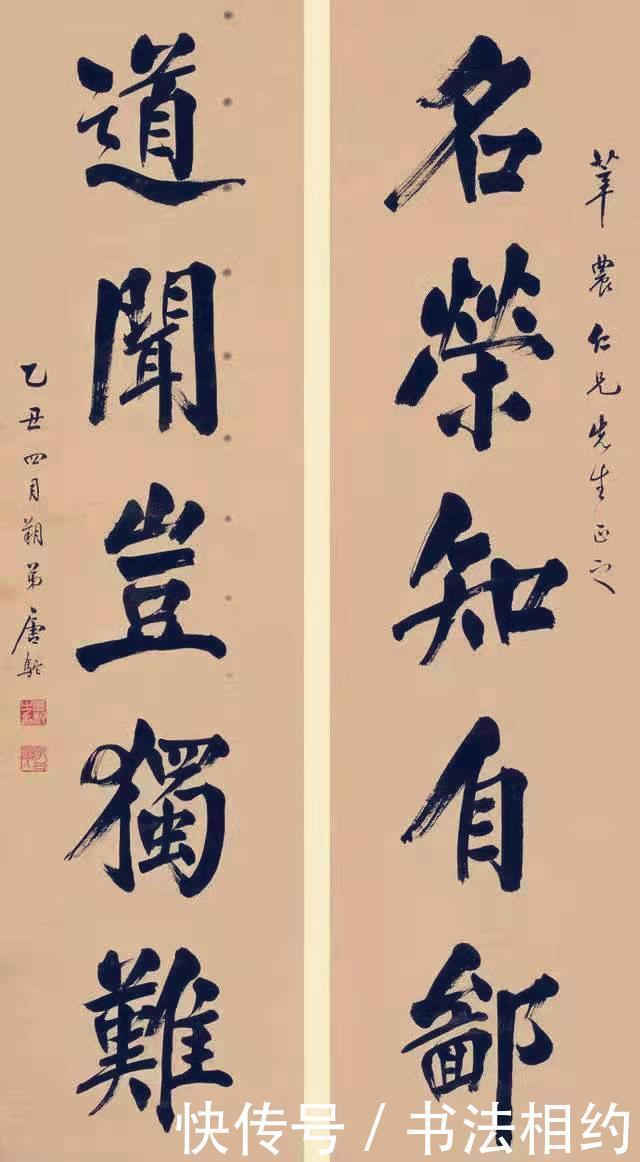 莘農仁兄先生正之
名榮知自鄙
道聞豈獨難
乙丑四月朔弟唐駝
快传号 / 书法相约